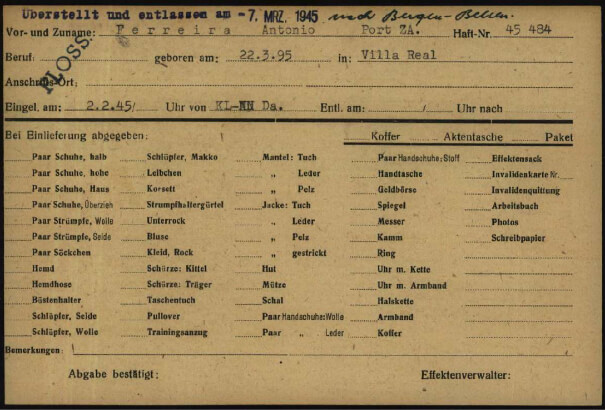 Überstellt und entlassen am -7. MRZ. 1945 nach Bergen-Belsen.
Vor- und Zuname: Ferreira Antonio Port ZA. Haft-Nr. 45 484
Beruf: geboren am: 22.3.95 in: Villa Real
FLOSS.
Anschrift: Ort:
Eingel. am: 2.2.45/ Uhr von KL-NN Da. Entl. am: Uhr nach
Bei Einlieferung abgegeben: Koffer Aktentasche Paket
Paar Schuhe, halb Schlüpfer, Makko Mantel: Tuch Paar Handschuhe: Stoff Effektensack
Paar Schuhe, hohe Leibchen „ Leder Handtasche Invalidenkarte Nr.
Paar Schuhe, Haus Korsett „ Pelz Geldbörse Invalidenquittung
Paar Schuhe, Überzieh Strumpfhaltergürtel Jacke: Tuch Spiegel Arbeitsbuch
Paar Strümpfe, Wolle Unterrock „ Leder Messer Photos
Paar Strümpfe, Seide Bluse „ Pelz Kamm Schreibpapier
Paar Söckchen Kleid, Rock „ gestrickt Ring
Hemd Schürze: Kittel Hut Uhr m. Kette
Hemdhose Schürze: Träger Mütze Uhr m. Armband
Büstenhalter Taschentuch Schal Halskette
Schlüpfer, Seide Pullover Paar Handschuhe: Wolle Armband
Schlüpfer, Wolle Trainingsanzug Paar „ Leder Koffer
Bemerkungen:
Abgabe bestätigt: Effektenverwalter: